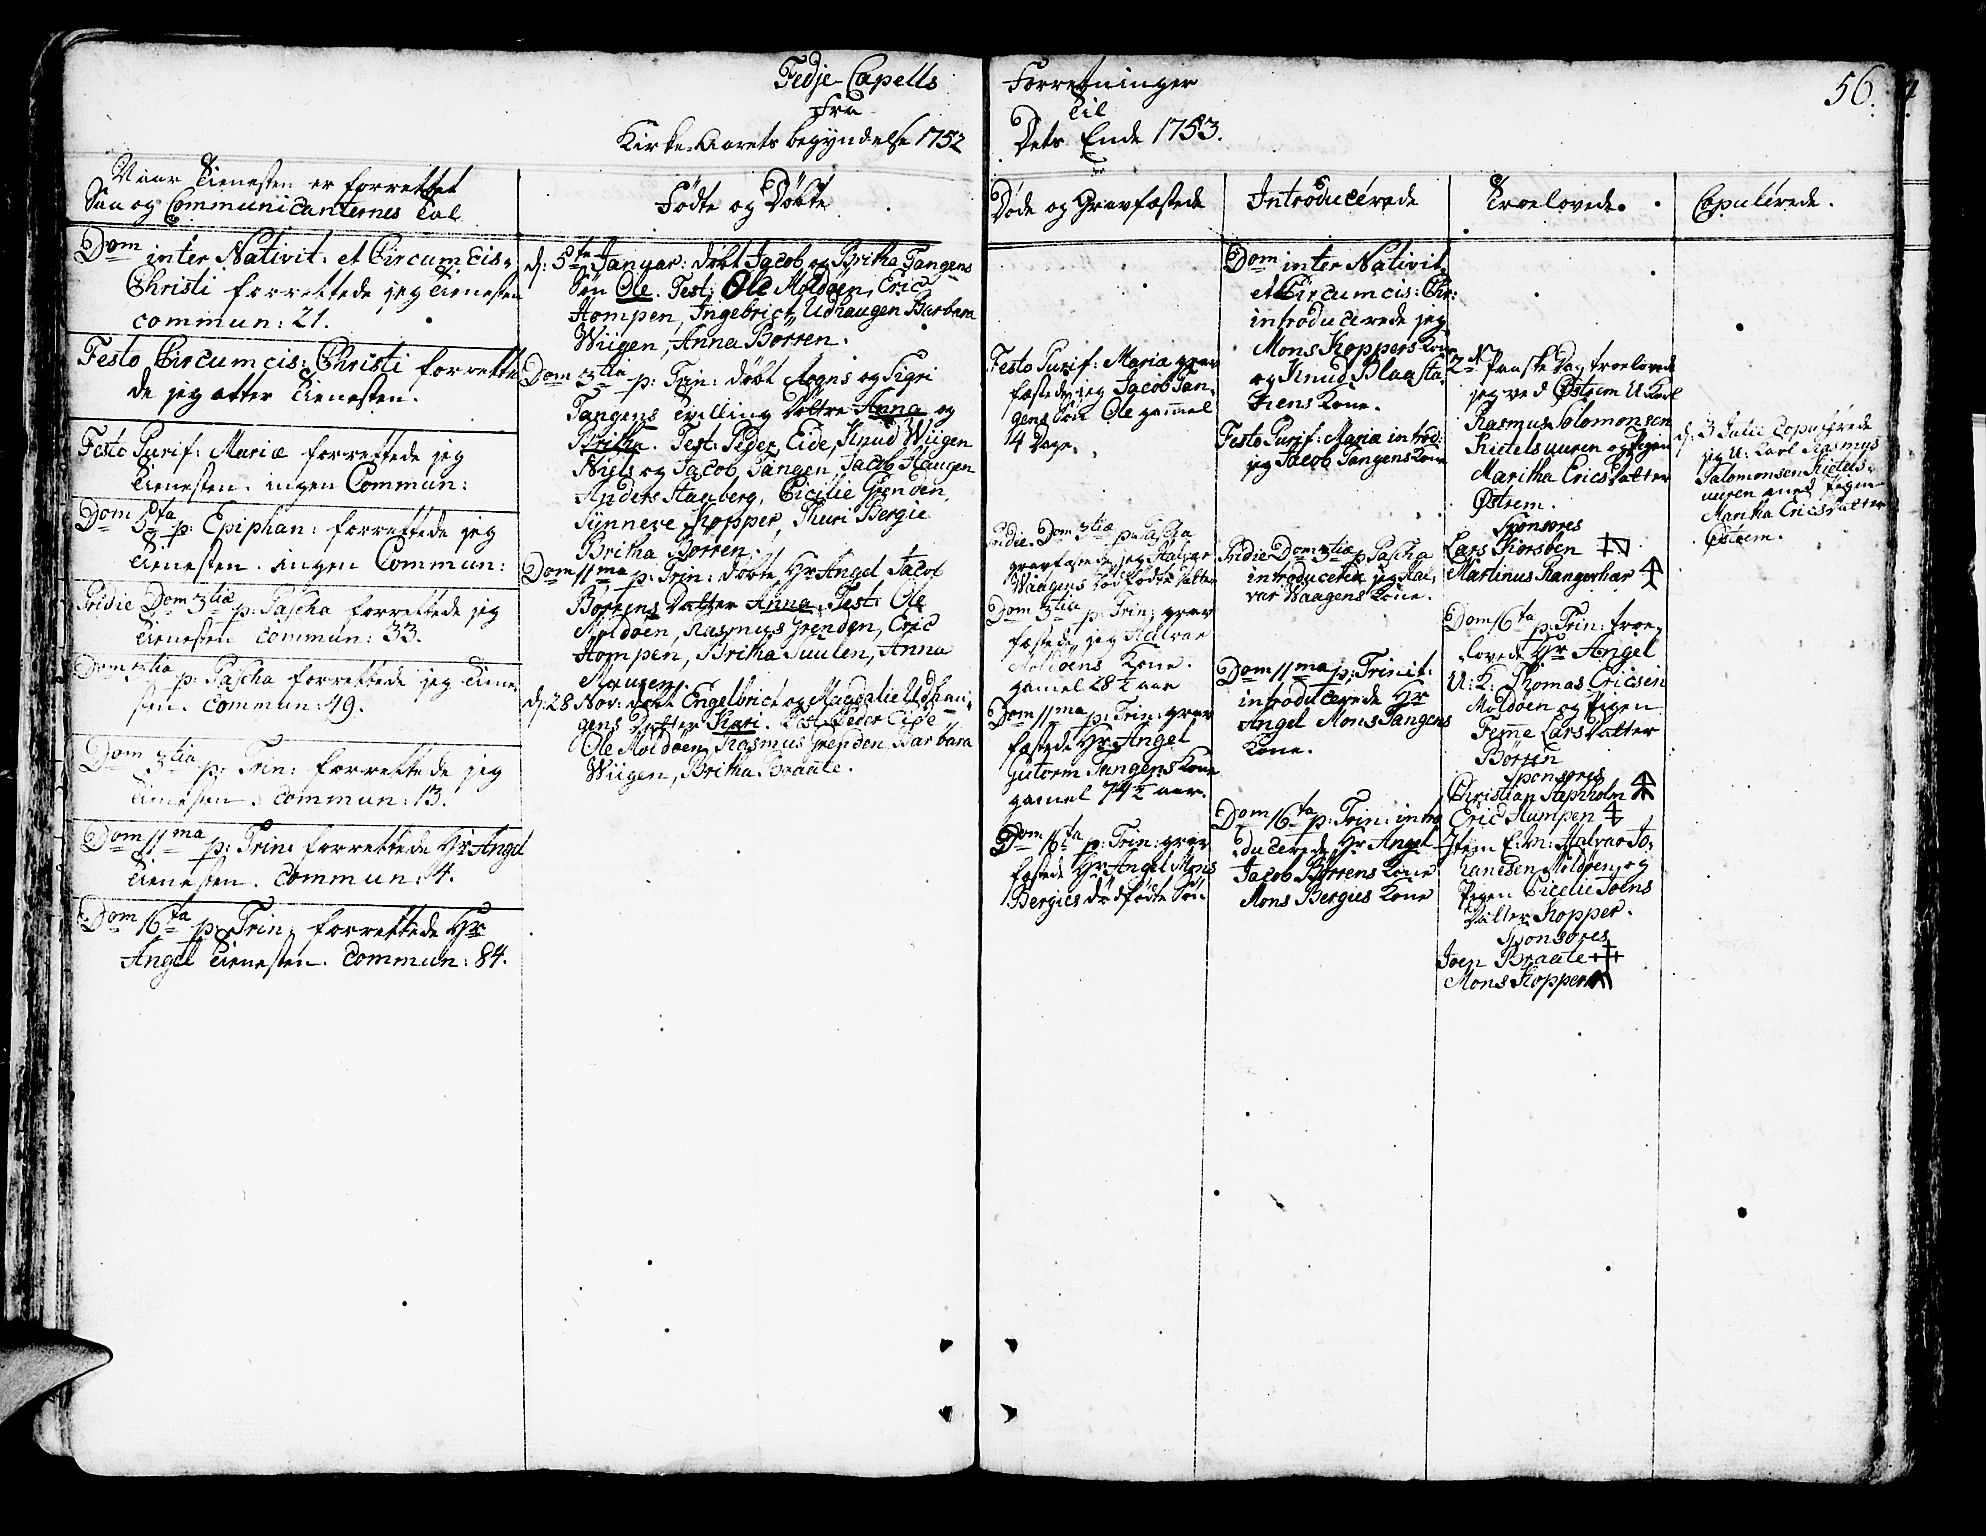 Fedje-Capells
Fra
Kirke-Aarets begyndelse 1752
Forretninger
Til
Dets Ende 1753.
56.
Naar Tienesten er forrettet
Saa og Communicanternes Tal
Dom inter Nativit: et Circumcis:
Christi forrettede jeg Tienesten
commun: 21.
Festo Circumcis: Christi forrette
de jeg atter Tienesten.
Festo Purif: Mariæ forrettede jeg
Tienesten. ingen Commun:
Dom 5ta p: Epiphan: forrettede jeg
Tienesten. ingen Commun:
Pridie Dom 3tiæ p: Pascha forrettede jeg
Tienesten commun: 33.
Dom 3tia p: Pascha forrettede jeg Tiene-
sten. commun: 49.
Dom 3tia p: Trin: forrettede jeg
Tienesten. commun: 13.
Dom 11ma p: Trin: forrettede Hr Angel
Tienesten. commun: 4.
Dom 16ta p: Trin: forrettede Hr
Angel Tienesten. commun: 84.
Fødte og Døbte
d: 5te Januar: døbt Jacob og Britha Tangens
Søn Ole. Test: Ole Moldøen, Eric
Hompen, Ingebrict Udhaugen Barbara
Wiigen, Anna Borren.
Dom 3tia p: Trin: døbt Mogns og Sigri
Tangens Tvilling Døttre Anna og
Britha. Test: Peder Eide, Knud Wiigen
Niels og Jacob Tangen, Jacob Haugen
Anders Stanberg, Cicilie Grenden,
Sünneve Kopper, Thuri Bergie
Britha Borren.
Dom 11ma p: Trin: døbte Hr Angel Jacob
Børrens Datter Anna. Test: Ole
Moldøen, Rasmus Grenden, Eric
Hompen, Britha Suulen, Anna
Haugen.
d: 28 Nov: døbt Engelbrict og Magdalie Udhau-
gens Datter Kari. Test: Peder Eide
Ole Moldøen, Rasmus Grenden, Barbara
Wiigen, Britha Braate.
Døde og Gravfæstede
Festo Purif: Mariæ grav
fæstede jeg Jacob Tan-
gens Søn Ole gammel
14 Dage.
Pridie Dom 3tiæ p: Pascha
gravfæstede jeg Halvar
Waagens dødfødte Datter
Dom 3tia p: Trin: grav
fæstede jeg Halvar
Moldøens Kone.
gamel 28 1/2 aar
Dom 11ma p: Trin: grav
fæstede Hr Angel
Gutorm Tangens Kone
gamel 74 1/2 aar.
Dom 16ta p: Trin: grav
fæstede Hr Angel Mons
Bergies dødfødte Søn
Introducérede
Dom inter Nativit
et Circumcis: Chr:
introducerede jeg
Mons Koppers Kone
og Knud Blaasta-
Kens Kone.
Festo Purif: Mariæ introd:
jeg Jacob Tangens Kone
Pridie Dom 3tiæ p Pascha
introducerede jeg Hal-
var Waagens Kone.
Dom 11ma p: Trinit:
introducerede Hr
Angel Mons Tangens
Kone.
Dom 16ta p: Trin: intro
ducerede Hr Angel
Jacob Børrens Kone
Mons Bergies Kone
Troelovede.
2den Paaske Dag troelovede
jeg ved Østrem U: Karl
Rasmus Solomonsen
Kietelsuuren og Pigen
Maritha Erics Datter
Østrem.
Sponsores
Lars Kiorsben
Martinus Rangerhar
Dom 16ta p: Trin: troe-
lovede Hr Angel
U: K: Thomas Ericsen
Moldøen og Pigen
Femme Lars Datter
Børren
Sponsores
Christian Stepholn
Eric Humpen
Item E: M: Halvar Jo-
hansen Moldøen og
Pigen Cicelie Jo Ins
Datter Kopper.
Sponsores
Joen Braate
Mons Kopper
Copulérede.
d: 3 Julii Copulérede
jeg U: Karl Rasmus
Salomonsen Kietels-
uuren med Pigen
Maritha Erics Datter
Østrem.